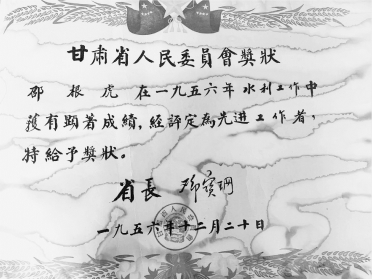 甘肅省人民委員會獎狀
邵根虎在一九五六年水利工作中
获有顯著成績，經評定為先進工作者，
特給予獎狀。
省長 鄧寶珊
一九五六年十二月二十日